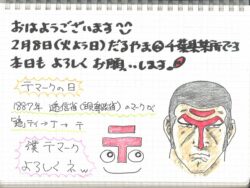 おはようございます
2月8日(火よう日)だるやま@千葉営業所です
本日もよろしくお願いします
テマークの日
1887年 逓信省(現郵政省)のマークが
テ
僕テマーク
よろしくネw